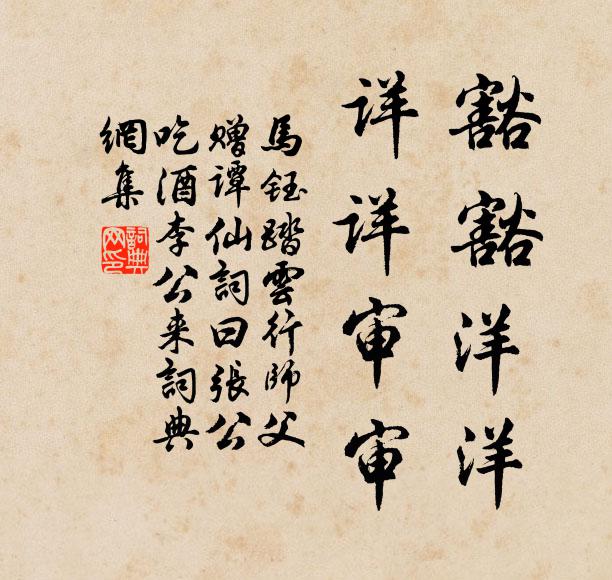 豁豁洋洋
详详审审
馬鈺踏雲行師父
赠譚仙詞曰張公
吃酒李公来詞典
網集
詞典
网印